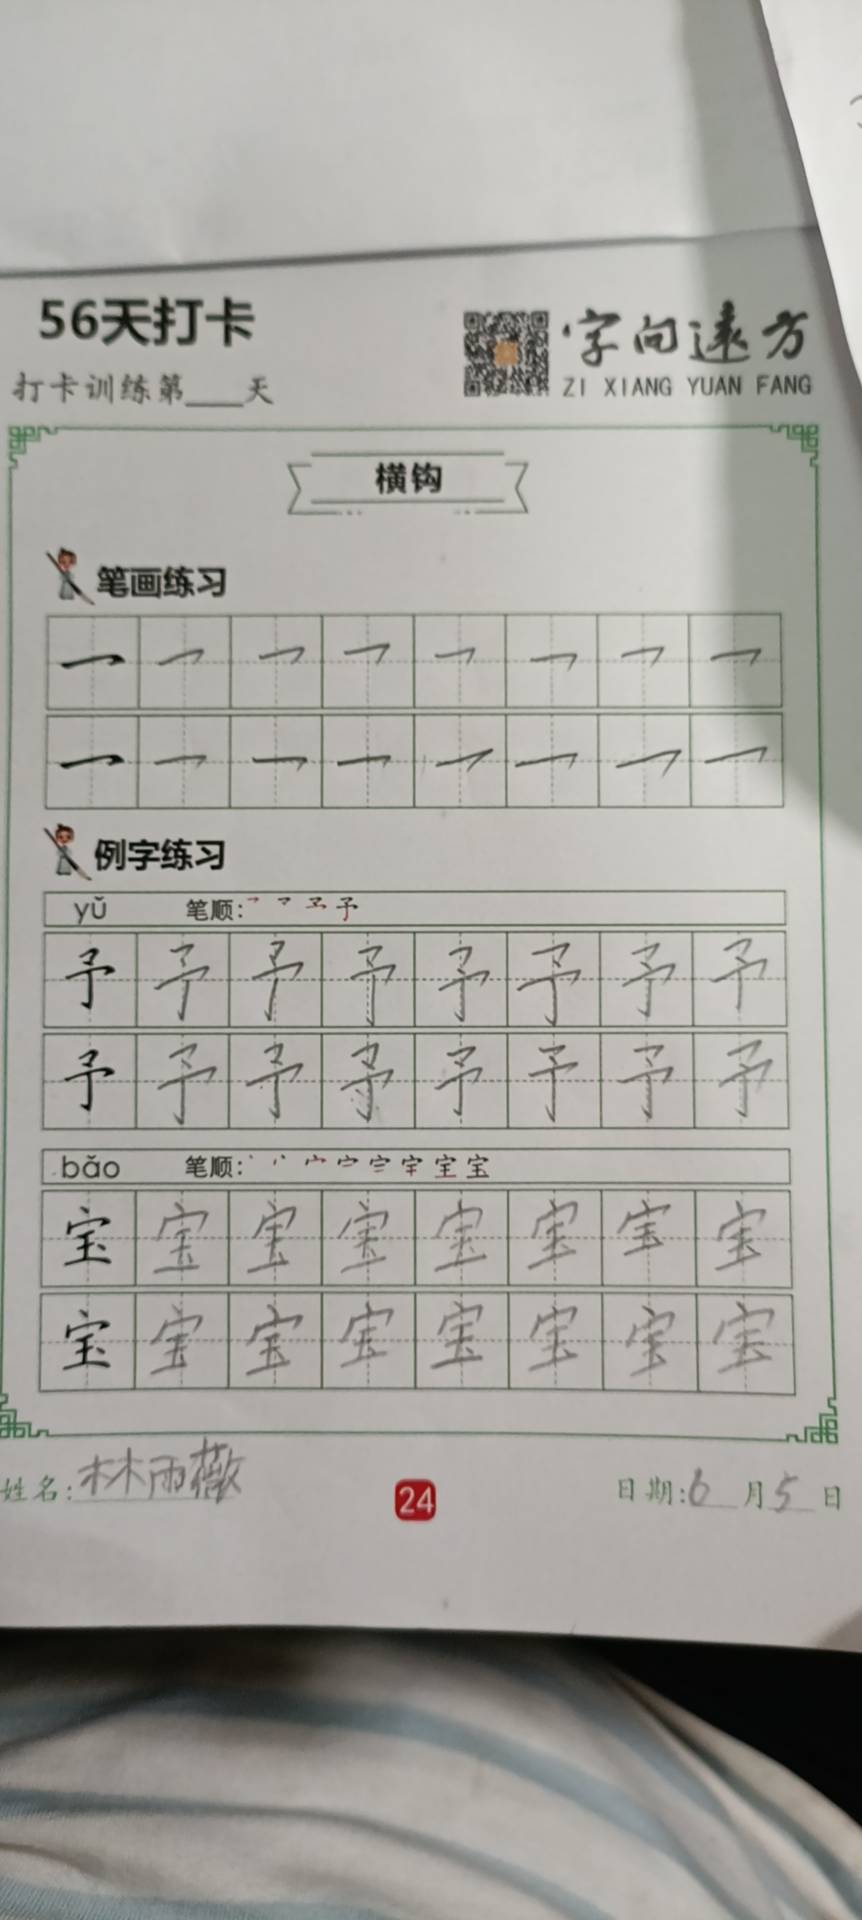 56天打卡
字向远方
ZI XIANG YUAN FANG
打卡训练第___天
横钩
笔画练习
例字练习
yǔ 笔顺:
予 予 予 予 予 予 予 予
予 予 予 予 予 予 予 予
bǎo 笔顺:
宝 宝 宝 宝 宝 宝 宝 宝
宝 宝 宝 宝 宝 宝 宝 宝
姓名:林雨薇
24
日期:6月5日